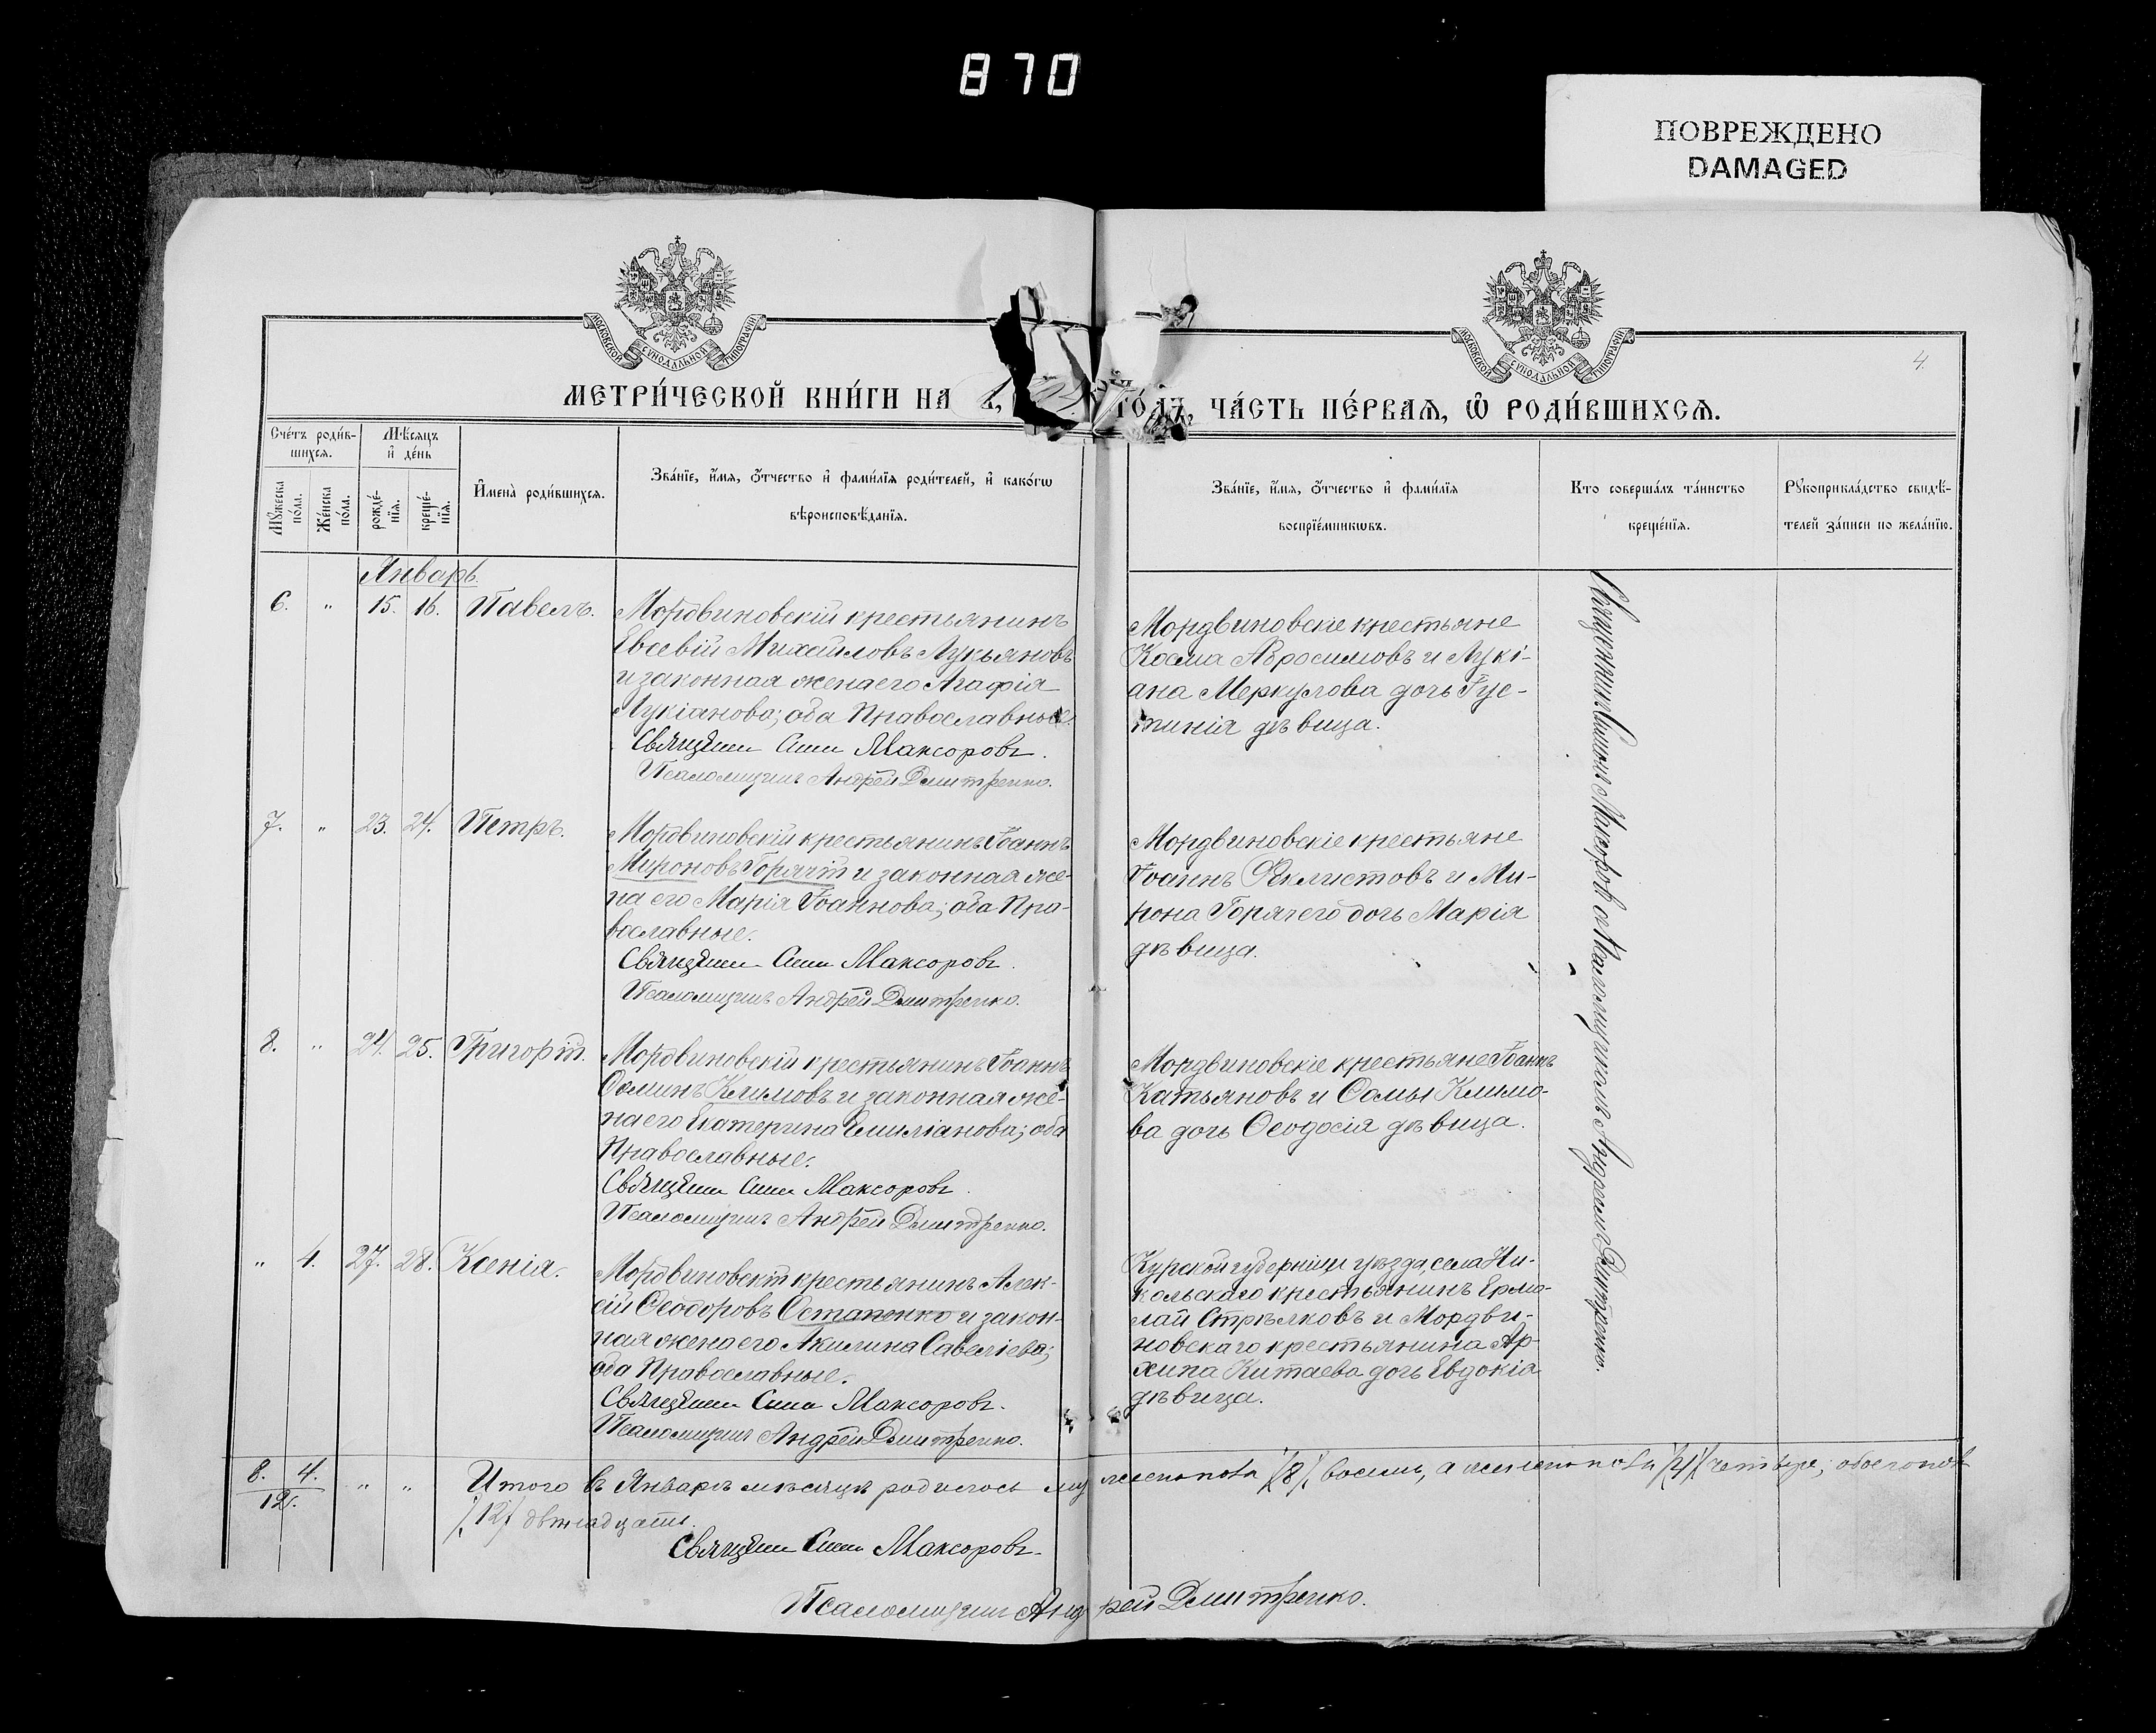 870
ПОВРЕЖДЕНО
DAMAGED
МОСКОВСКОЙ СѴНОДАЛЬНОЙ ТИПОГРАФІИ
МОСКОВСКОЙ СѴНОДАЛЬНОЙ ТИПОГРАФІИ
4.
МЕТРИ́ЧЕСКОЙ КНИ́ГИ НА
ГО́ДЪ, ЧА́СТЬ ПЕ́РВАЯ, Ѽ РОДИ́ВШИХСЯ.
Сче́тъ роди́в-
шихся.
Мѣ́сяцъ
и҆ де́нь
Мꙋ́жеска
по́ла.
Же́нска
по́ла.
рожде́-
нїя.
креще́-
нїя.
И҆мена̀ роди́вшихся.
Зва́нїе, и҆́мя, ѻ҆́тчество и҆ фами́лїя роди́телей, и҆ како́гѡ
вѣроисповѣ́данїя.
Зва́нїе, и҆́мя, ѻ҆́тчество и҆ фами́лїя
воспрїе́мникѡвъ.
Кто соверша́лъ та́инство
креще́нїя.
Рꙋкоприкла́дство свидѣ́-
телей за́писи по жела́нїю.
Январь.
6. " 15. 16. Павелъ.
Мордвиновскій крестьянинъ
Евсевій Михайловъ Лукьяновъ
и законная жена его Агафія
Лукіанова; оба Православные.
Священникъ Симеонъ Максоровъ.
Псаломщикъ Андрей Дмитренко.
Мордвиновскіе крестьяне
Косма Абросимовъ и Лукі-
ана Меркулова дочь Іус-
тинія дѣвица.
Священникъ Симеонъ Максоровъ съ Псаломщикомъ Андреемъ Дмитренко.
7. " 23. 24. Петръ.
Мордвиновскій крестьянинъ Іоаннъ
Мироновъ Горячій и законная же-
на его Марія Іоаннова; оба Пра-
вославные.
Священникъ Симеонъ Максоровъ.
Псаломщикъ Андрей Дмитренко.
Мордвиновскіе крестьяне
Іоаннъ Феклистовъ и Ми-
рона Горячего дочь Марія
дѣвица.
8. " 24. 25. Григорій.
Мордвиновскій крестьянинъ Іоаннъ
Ѳоминъ Климовъ и законная же-
на его Екатерина Емиліанова; оба
Православные.
Священникъ Симеонъ Максоровъ.
Псаломщикъ Андрей Дмитренко.
Мордвиновскіе крестьяне Іоаннъ
Катьяновъ и Ѳомы Климо-
ва дочь Ѳеодосія дѣвица.
" 4. 27. 28. Ксенія.
Мордвиновскій крестьянинъ Алек-
сій Ѳеодоровъ Остапенко и закон-
ная жена его Акилина Савеліева;
оба Православные.
Священникъ Симеонъ Максоровъ.
Псаломщикъ Андрей Дмитренко.
Курской губерніи и уѣзда, села Ни-
кольскаго крестьянинъ Ермо-
лай Стрѣлковъ и Мордви-
новскаго крестьянина Ар-
хипа Китаева дочь Евдокія
дѣвица.
8. 4. " " Итого въ Январѣ мѣсяцѣ родилось мужескаго пола /8/ восемь, а женскаго пола /4/ четыре; обоего пола
12. /12/ двѣнадцать.
Священникъ Симеонъ Максоровъ.
Псаломщикъ Андрей Дмитренко.